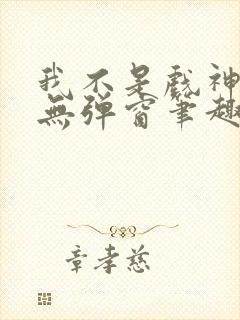 我不是戲神
無彈窗筆趣
章孝慈